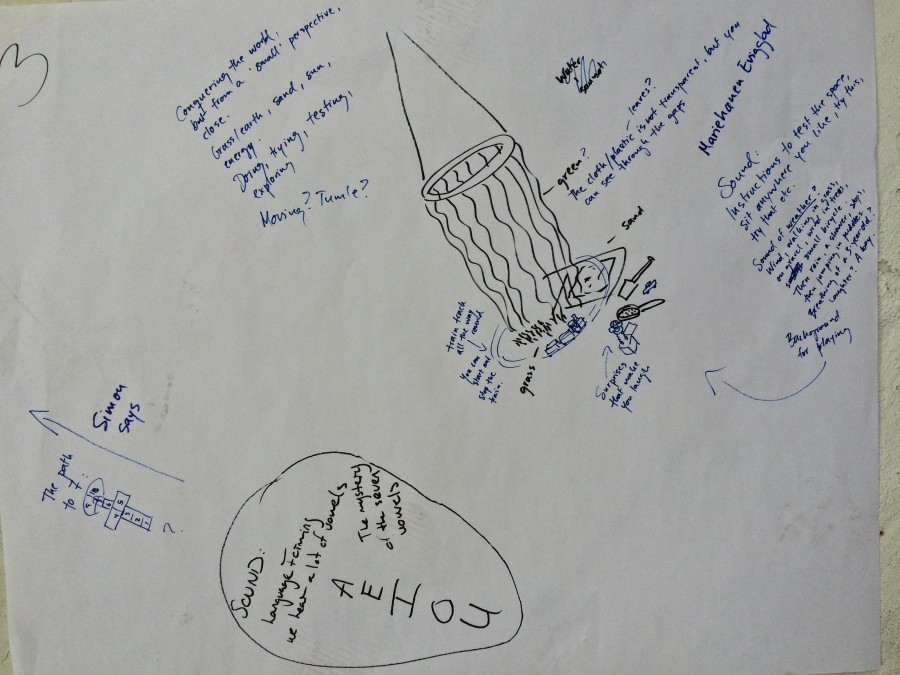 3
Conquering the world,
but from a 'small' perspective,
close.
Grass/earth, sand, sun,
energy.
Doing, trying, testing,
exploring
Moving? Tumle?
water
green?
leaves?
The cloth/plastic is not transparent, but you
can see through the gaps
sand
Mariehaven
Sound:
Instructions to test the space,
sit anywhere you like, try this,
try that etc.
Sound of weather?
Wind, walking in grass,
on gravel, wind in trees,
small bicycle
Then rain, a shower, stop,
then jumping in puddles.
Breathing of a 3 yearold?
laughter? A boy.
Background
for playing
train track
all the way
round
You can
start and
stop the
train.
grass
Surprises
that make
you laugh
Simon
says
The path
to it:
1
2
3
4
5
6
?
SOUND:
Language training
we hear a lot of vowels
The mystery
of the seven
vowels
A
E
I
O
U